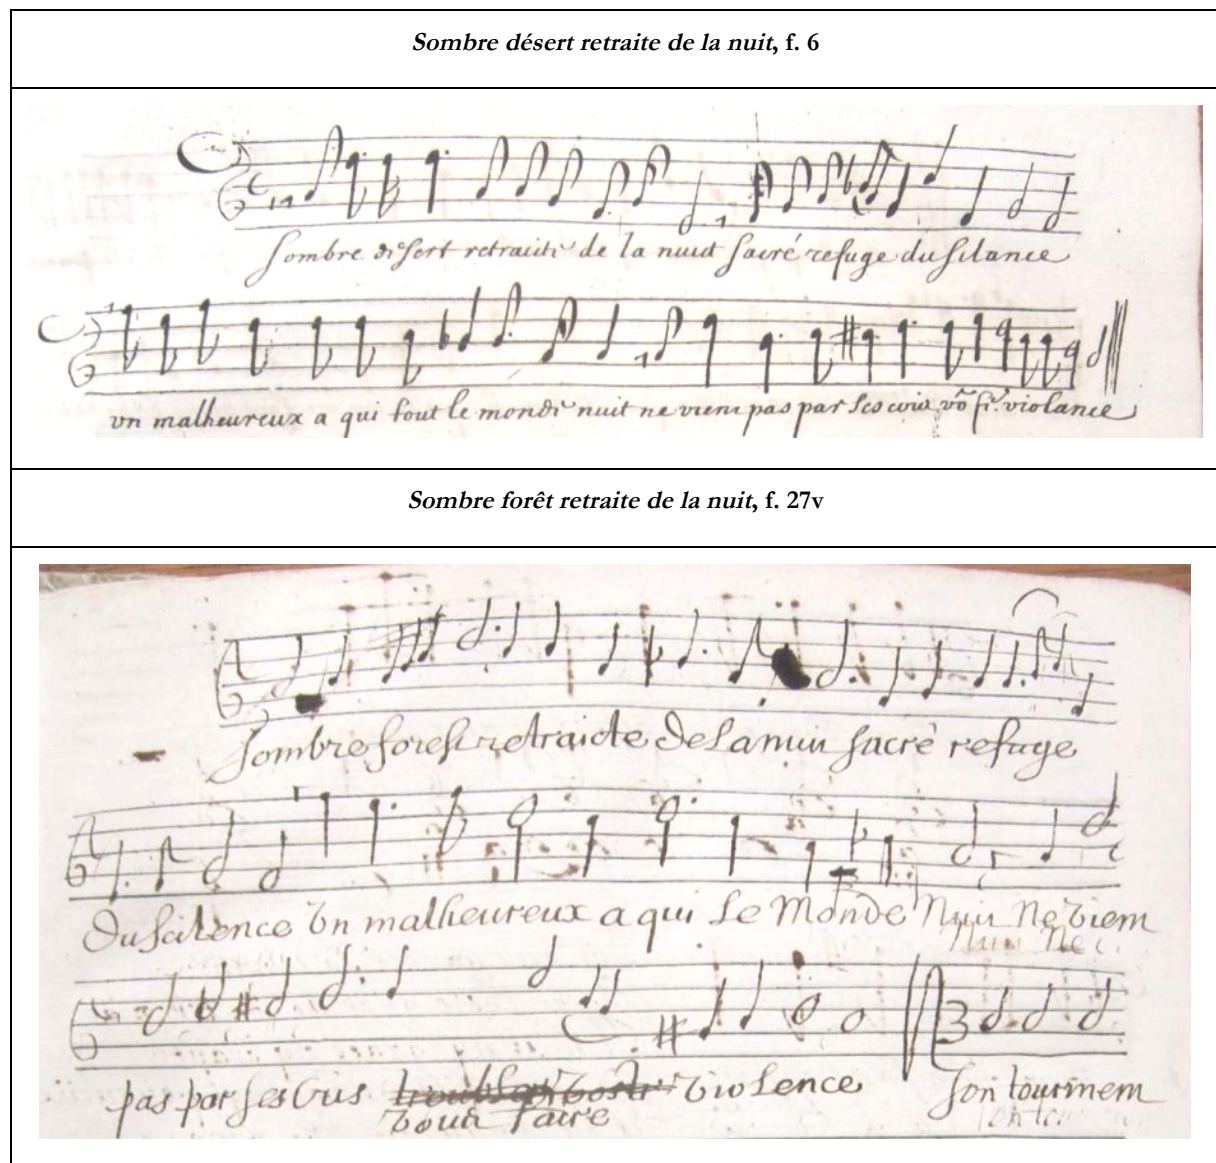 Sombre désert retraite de la nuit, f. 6
sombre desert retraite de la nuit sacré refuge du silance
vn malheureux a qui tout le monde nuit ne vient pas par ses cris vo fe violance
Sombre forêt retraite de la nuit, f. 27v
sombre forest retraicte de la nuit sacré refuge
du scilence vn malheureux a qui le monde nuit ne viem
pas par ses cris violence son tourmem
vour faire